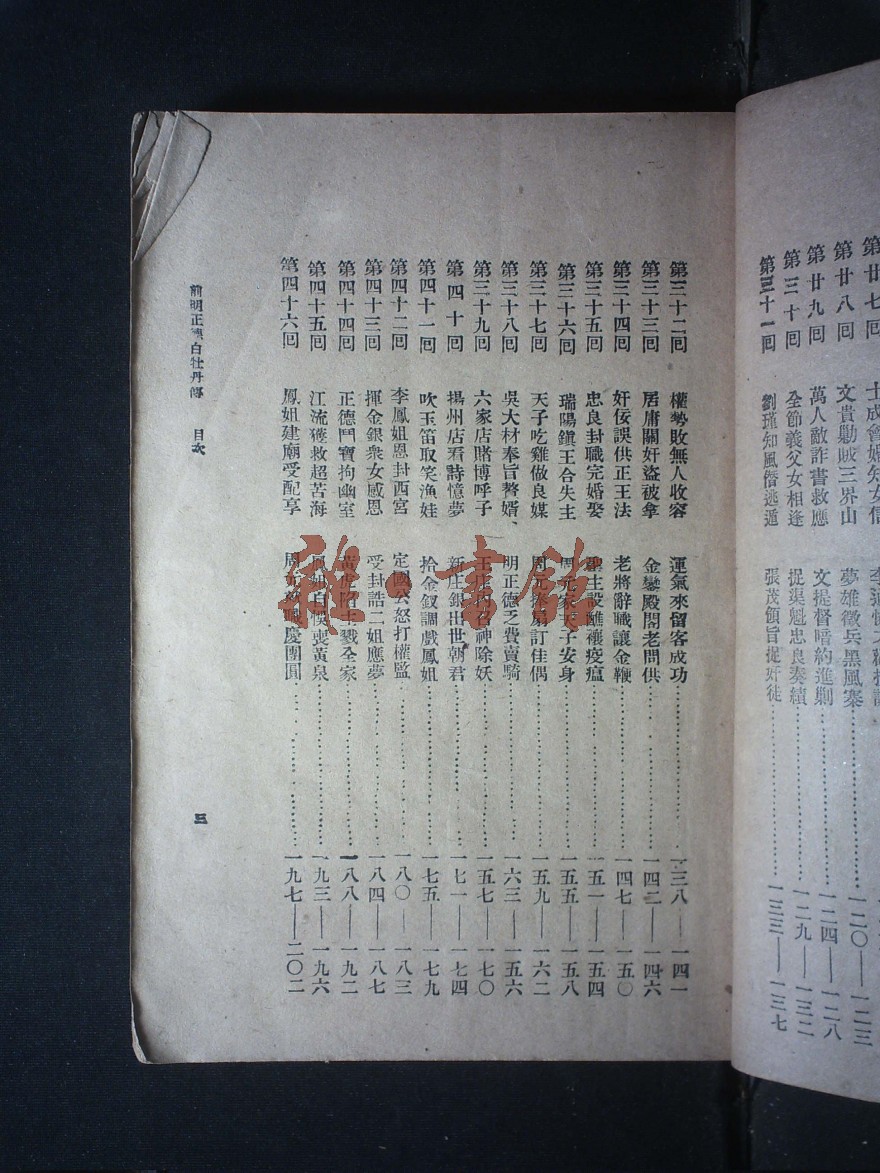 第廿七回
第廿八回 文貴勦賊三界山 夢雄徵兵黑風寨 一二〇——一二三
第廿九回 萬人敵詐書救應 文提督暗約進剿 一二四——一二八
第三十回 全節義父女相逢 捉渠魁忠良奏績 一二九——一三二
第三十一回 劉瑾知風僭逃遁 張茂領旨捉奸徒 一三三——一三七
第三十二回 權勢敗無人收容 運氣來留客成功 一三八——一四一
第三十三回 居庸關奸盜被拿 金鑾殿閣老問供 一四二——一四六
第三十四回 奸佞誤供正王法 老將辭職讓金鞭 一四七——一五〇
第三十五回 忠良封職完婚娶 設醮禳疫瘟 一五一——一五四
第三十六回 瑞陽鎮王合失主 周元家天子安身 一五五——一五八
第三十七回 天子吃雞做良媒 周元 訂佳偶 一五九——一六二
第三十八回 吳大材奉旨贅婿、 明正德乏費賣騎 一六三——一五六
第三十九回 六家店賭博呼子 王庄內召神除妖 一五七——一七〇
第四十回 揚州店看詩憶夢 新庄銀出世朝君 一七一——一七四
第四十一回 吹玉笛取笑漁娃 拾金釵調戲鳳姐 一七五——一七九
第四十二回 李鳳姐恩封西宮 定國公怒打權監 一八〇——一八三
第四十三回 揮金銀衆女感恩 受封誥二姐應夢 一八四——一八七
第四十四回 正德鬥寶拘幽室 戮全家 一八八——一九二
第四十五回 江流獲救超苦海 鳳姐自悞喪黃泉 一九三——一九六
第四十六回 鳳姐建廟受配享 周元 職慶團圓 一九七——二〇二
前明正德白牡丹傳 目次
三
雅書館